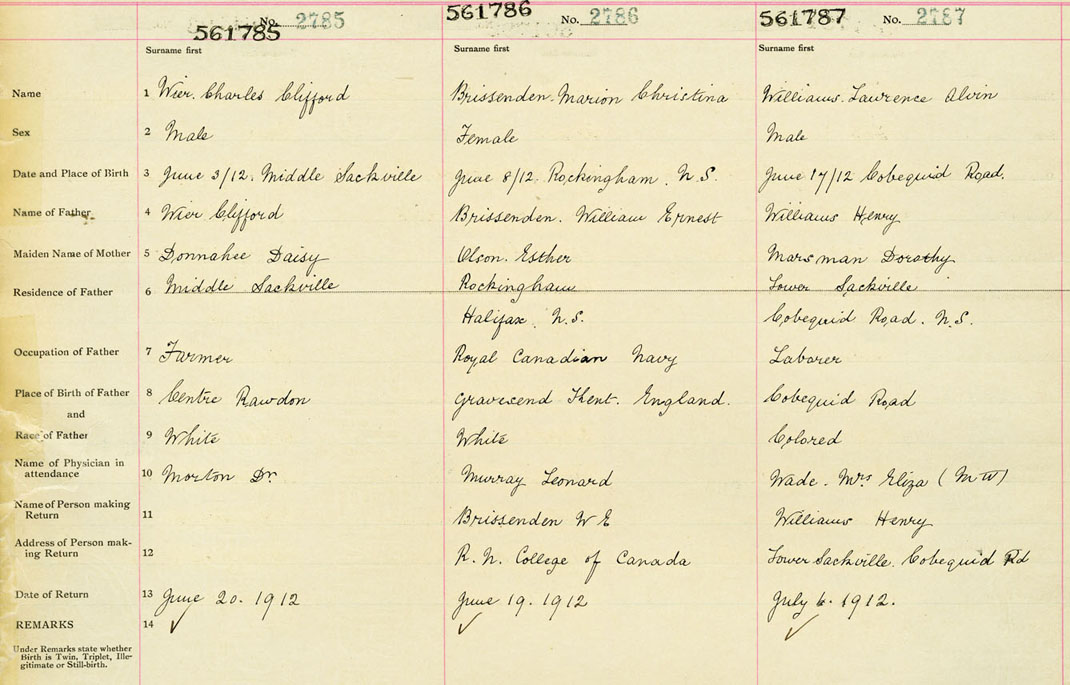 561785 No. 2785 561786 No. 2786 561787 No. 2787
Surname first Surname first Surname first
Name 1 Wier. Charles Clifford Brissenden. Marion Christina Williams. Lawrence Alvin
Sex 2 Male Female Male
Date and Place of Birth 3 June 3/12. Middle Sackville June 8/12. Rockingham. N.S. June 17/12 Cobequid Road.
Name of Father 4 Wier Clifford Brissenden. William Ernest Williams Henry
Maiden Name of Mother 5 Donnahee Daisy Olson. Esther Marsman Dorothy
Residence of Father 6 Middle Sackville Rockingham Lower Sackville
Halifax. N.S. Cobequid Road. N.S.
Occupation of Father 7 Farmer Royal Canadian Navy Laborer
Place of Birth of Father 8 Centre Rawdon Gravesend Kent. England. Cobequid Road
and
Race of Father 9 White White Colored
Name of Physician in
attendance 10 Morton Dr. Murray Leonard Wade. Mrs Eliza (MW)
Name of Person making
Return 11 Brissenden W E Williams Henry
Address of Person mak-
ing Return 12 R. N. College of Canada Lower Sackville. Cobequid Rd
Date of Return 13 June 20. 1912 June 19. 1912 July 6. 1912.
REMARKS 14 ✓ ✓ ✓
Under Remarks state whether
Birth is Twin, Triplet, Ille-
gitimate or Still-birth.